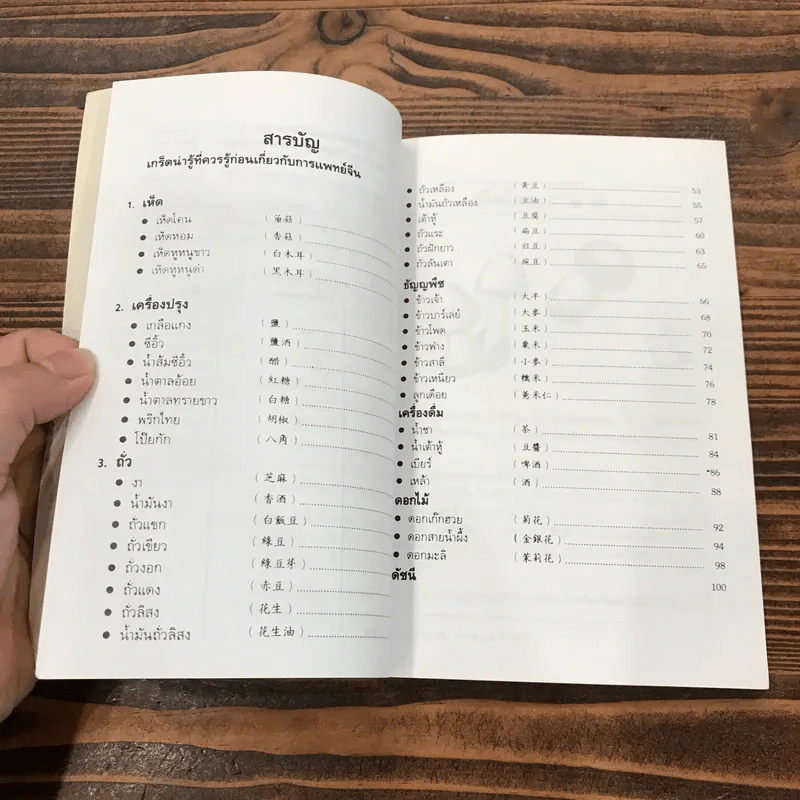 สารบัญ
เกร็ดน่ารู้ที่ควรรู้ก่อนเกี่ยวกับการแพทย์จีน
1. เห็ด
• เห็ดโคน (蘑菇)
• เห็ดหอม (香菇)
• เห็ดหูหนูขาว (白木耳)
• เห็ดหูหนูดำ (黑木耳)
2. เครื่องปรุง
• เกลือแกง (鹽)
• ซีอิ๊ว (鹽酒)
• น้ำส้มซีอิ๊ว (醋)
• น้ำตาลอ้อย (紅糖)
• น้ำตาลทรายขาว (白糖)
• พริกไทย (胡椒)
• โป๊ยกัก (八角)
3. ถั่ว
• งา (芝麻)
• น้ำมันงา (香酒)
• ถั่วแขก (白飯豆)
• ถั่วเขียว (綠豆)
• ถั่วงอก (綠豆芽)
• ถั่วแดง (赤豆)
• ถั่วลิสง (花生)
• น้ำมันถั่วลิสง (花生油)
• ถั่วเหลือง (黃豆) 53
• น้ำมันถั่วเหลือง (豆油) 55
• เต้าหู้ (豆腐) 57
• ถั่วแระ (扁豆) 60
• ถั่วฝักยาว (豇豆) 63
• ถั่วลันเตา (豌豆) 65
ธัญญพืช
• ข้าวเจ้า 66
• ข้าวบาร์เลย์ (大麥) 68
• ข้าวโพด (玉米) 70
• ข้าวฟ่าง (粟米) 72
• ข้าวสาลี (小麥) 74
• ข้าวเหนียว (糯米) 76
• ลูกเดือย (薏米仁) 78
เครื่องดื่ม
• น้ำชา (茶) 81
• น้ำเต้าหู้ (豆醬) 84
• เบียร์ (啤酒) 86
• เหล้า (酒) 88
ดอกไม้
• ดอกเก๊กฮวย (菊花) 92
• ดอกสายน้ำผึ้ง (金銀花) 94
• ดอกมะลิ (茉莉花) 98
ดัชนี 100